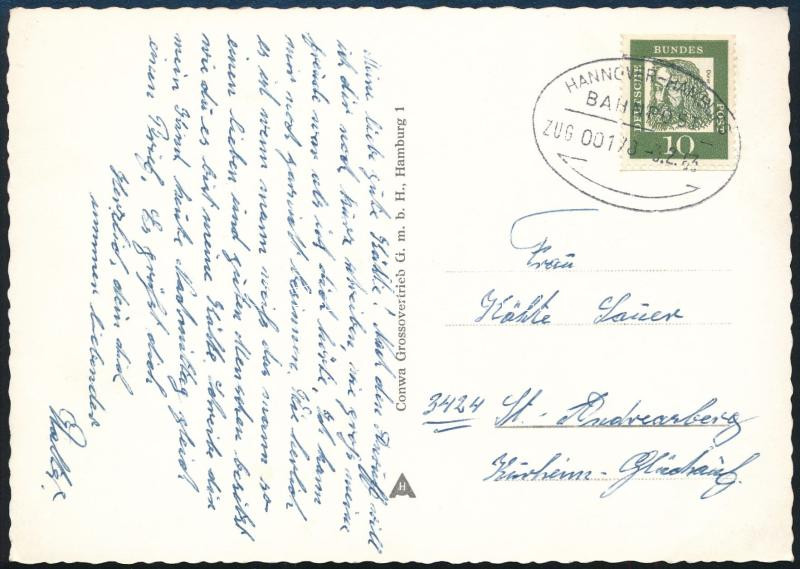 Meine liebe gute Käthe! Nach dem Anruf will
ich dir noch kurz schreiben, wie groß meine
Freude war als ich dich hörte, ich kann
mich noch garnicht
es ist wenn mann weiß das mann so
einen lieben und guten Menschen besitzt
wie du es bist meine Käthe schreibe dir
mein Kind heute Nachmittag gleich
einen Brief. Es grüßt dich
Herzlich, dein dich
immer liebender
Conwa Grossovertrieb G. m. b. H., Hamburg 1
H
DEUTSCHE BUNDES POST
Dürer
10
HANNOVER-HAMBURG
BAHNPOST
ZUG 00178
Frau
Käthe Sauer
3424 St. Andreasberg
Kurheim-Glückauf.